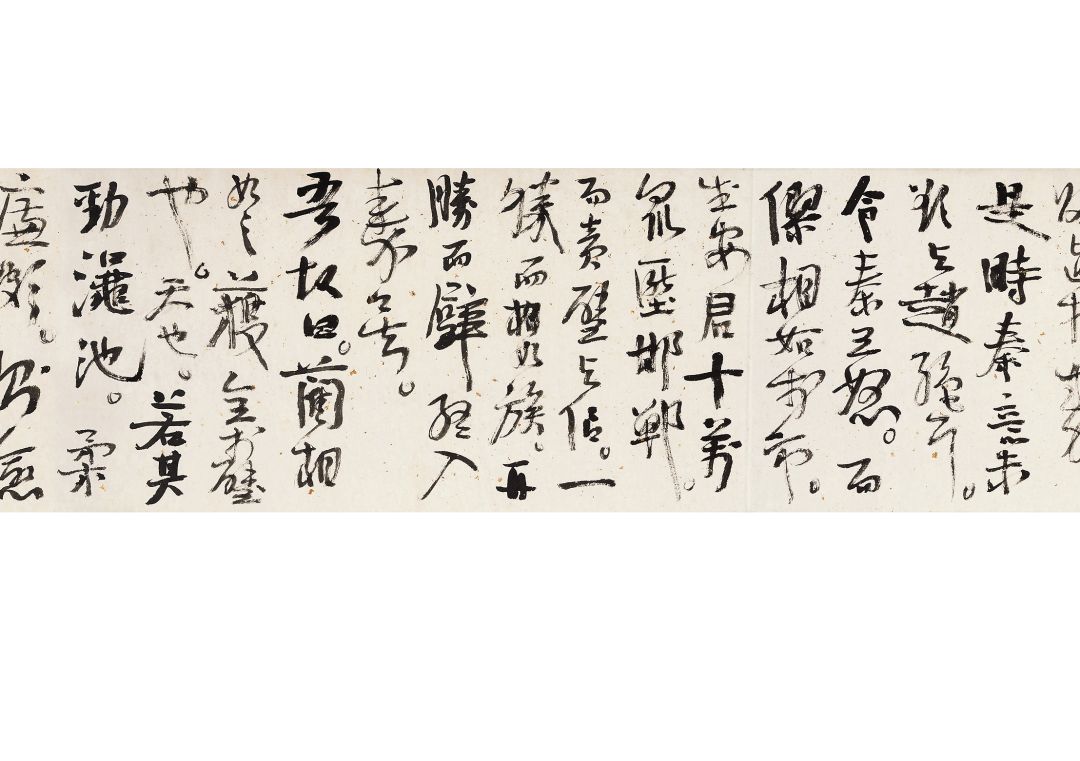 是時秦意未
欲與趙絕耳。
令秦王怒。而
僇相如於市。
武安君十萬
眾壓邯鄲。
而責璧與信。一
勝而相如族。再
勝而璧終入
秦矣。
吾故曰。藺相
如之獲全於璧
也。天也。若其
勁澠池。柔
廉頗。則愈